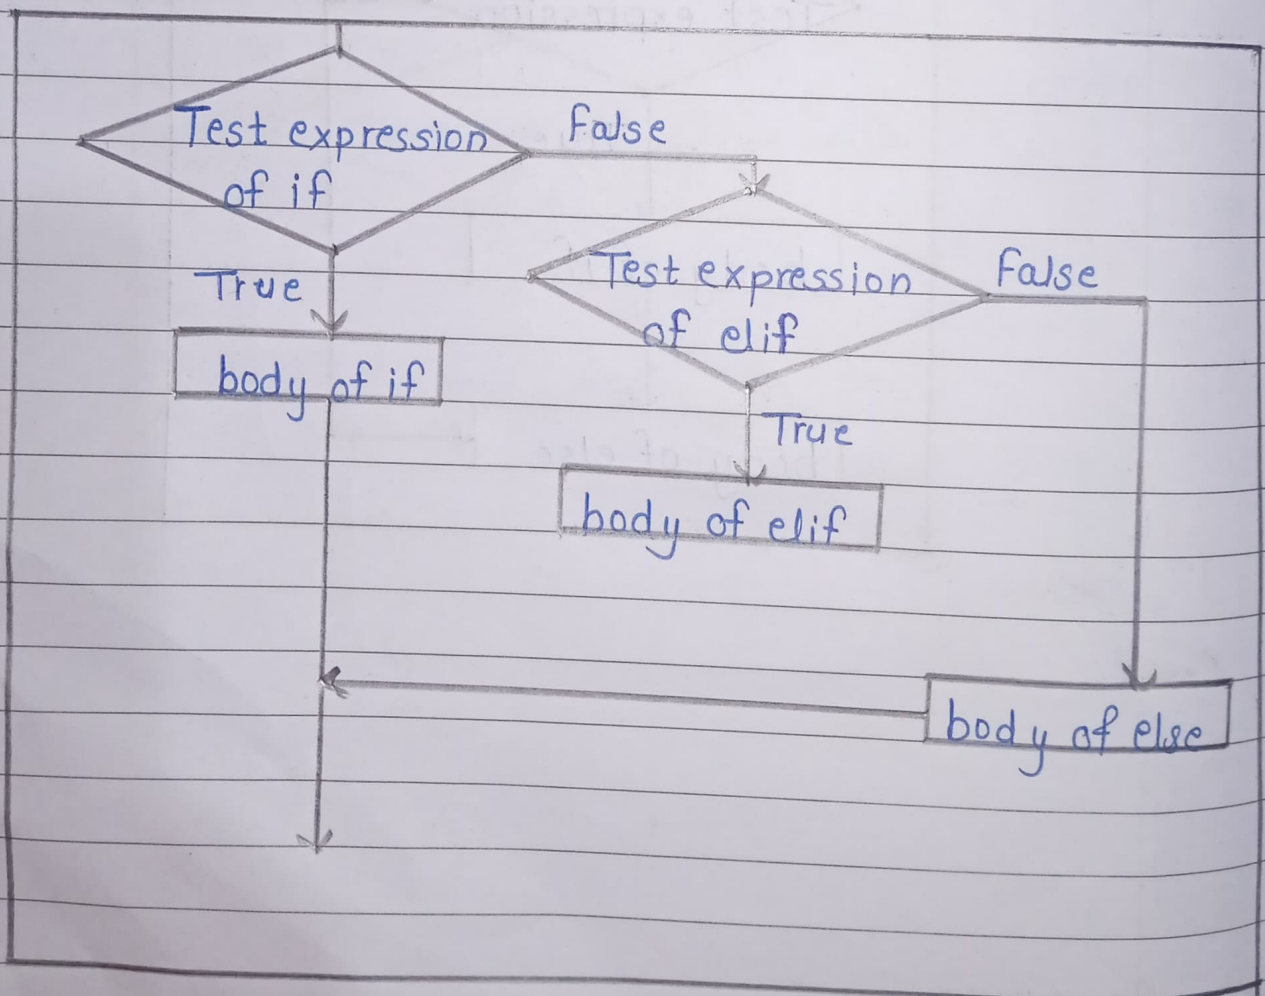 Test expression
of if
False
True
body of if
Test expression
of elif
False
True
body of elif
body of else